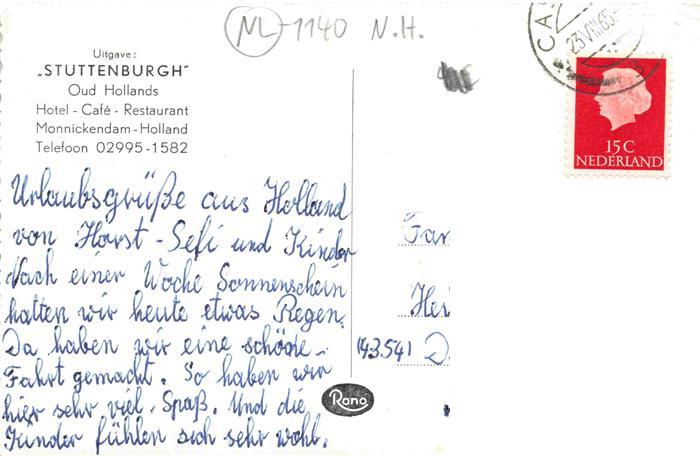 NL-1140 N.H.
Uitgave:
„STUTTENBURGH"
Oud Hollands
Hotel - Café - Restaurant
Monnickendam - Holland
Telefoon 02995-1582
23 VIII 65
15 C
NEDERLAND
Urlaubsgrüße aus Holland
von Horst - Sefi und Kinder
Nach einer Woche Sonnenschein
hatten wir heute etwas Regen.
Da haben wir eine schöne
Fahrt gemacht. So haben wir
hier sehr viel Spaß. Und die
Kinder fühlen sich sehr wohl.
Fam
Her
(43.541 D
Rano